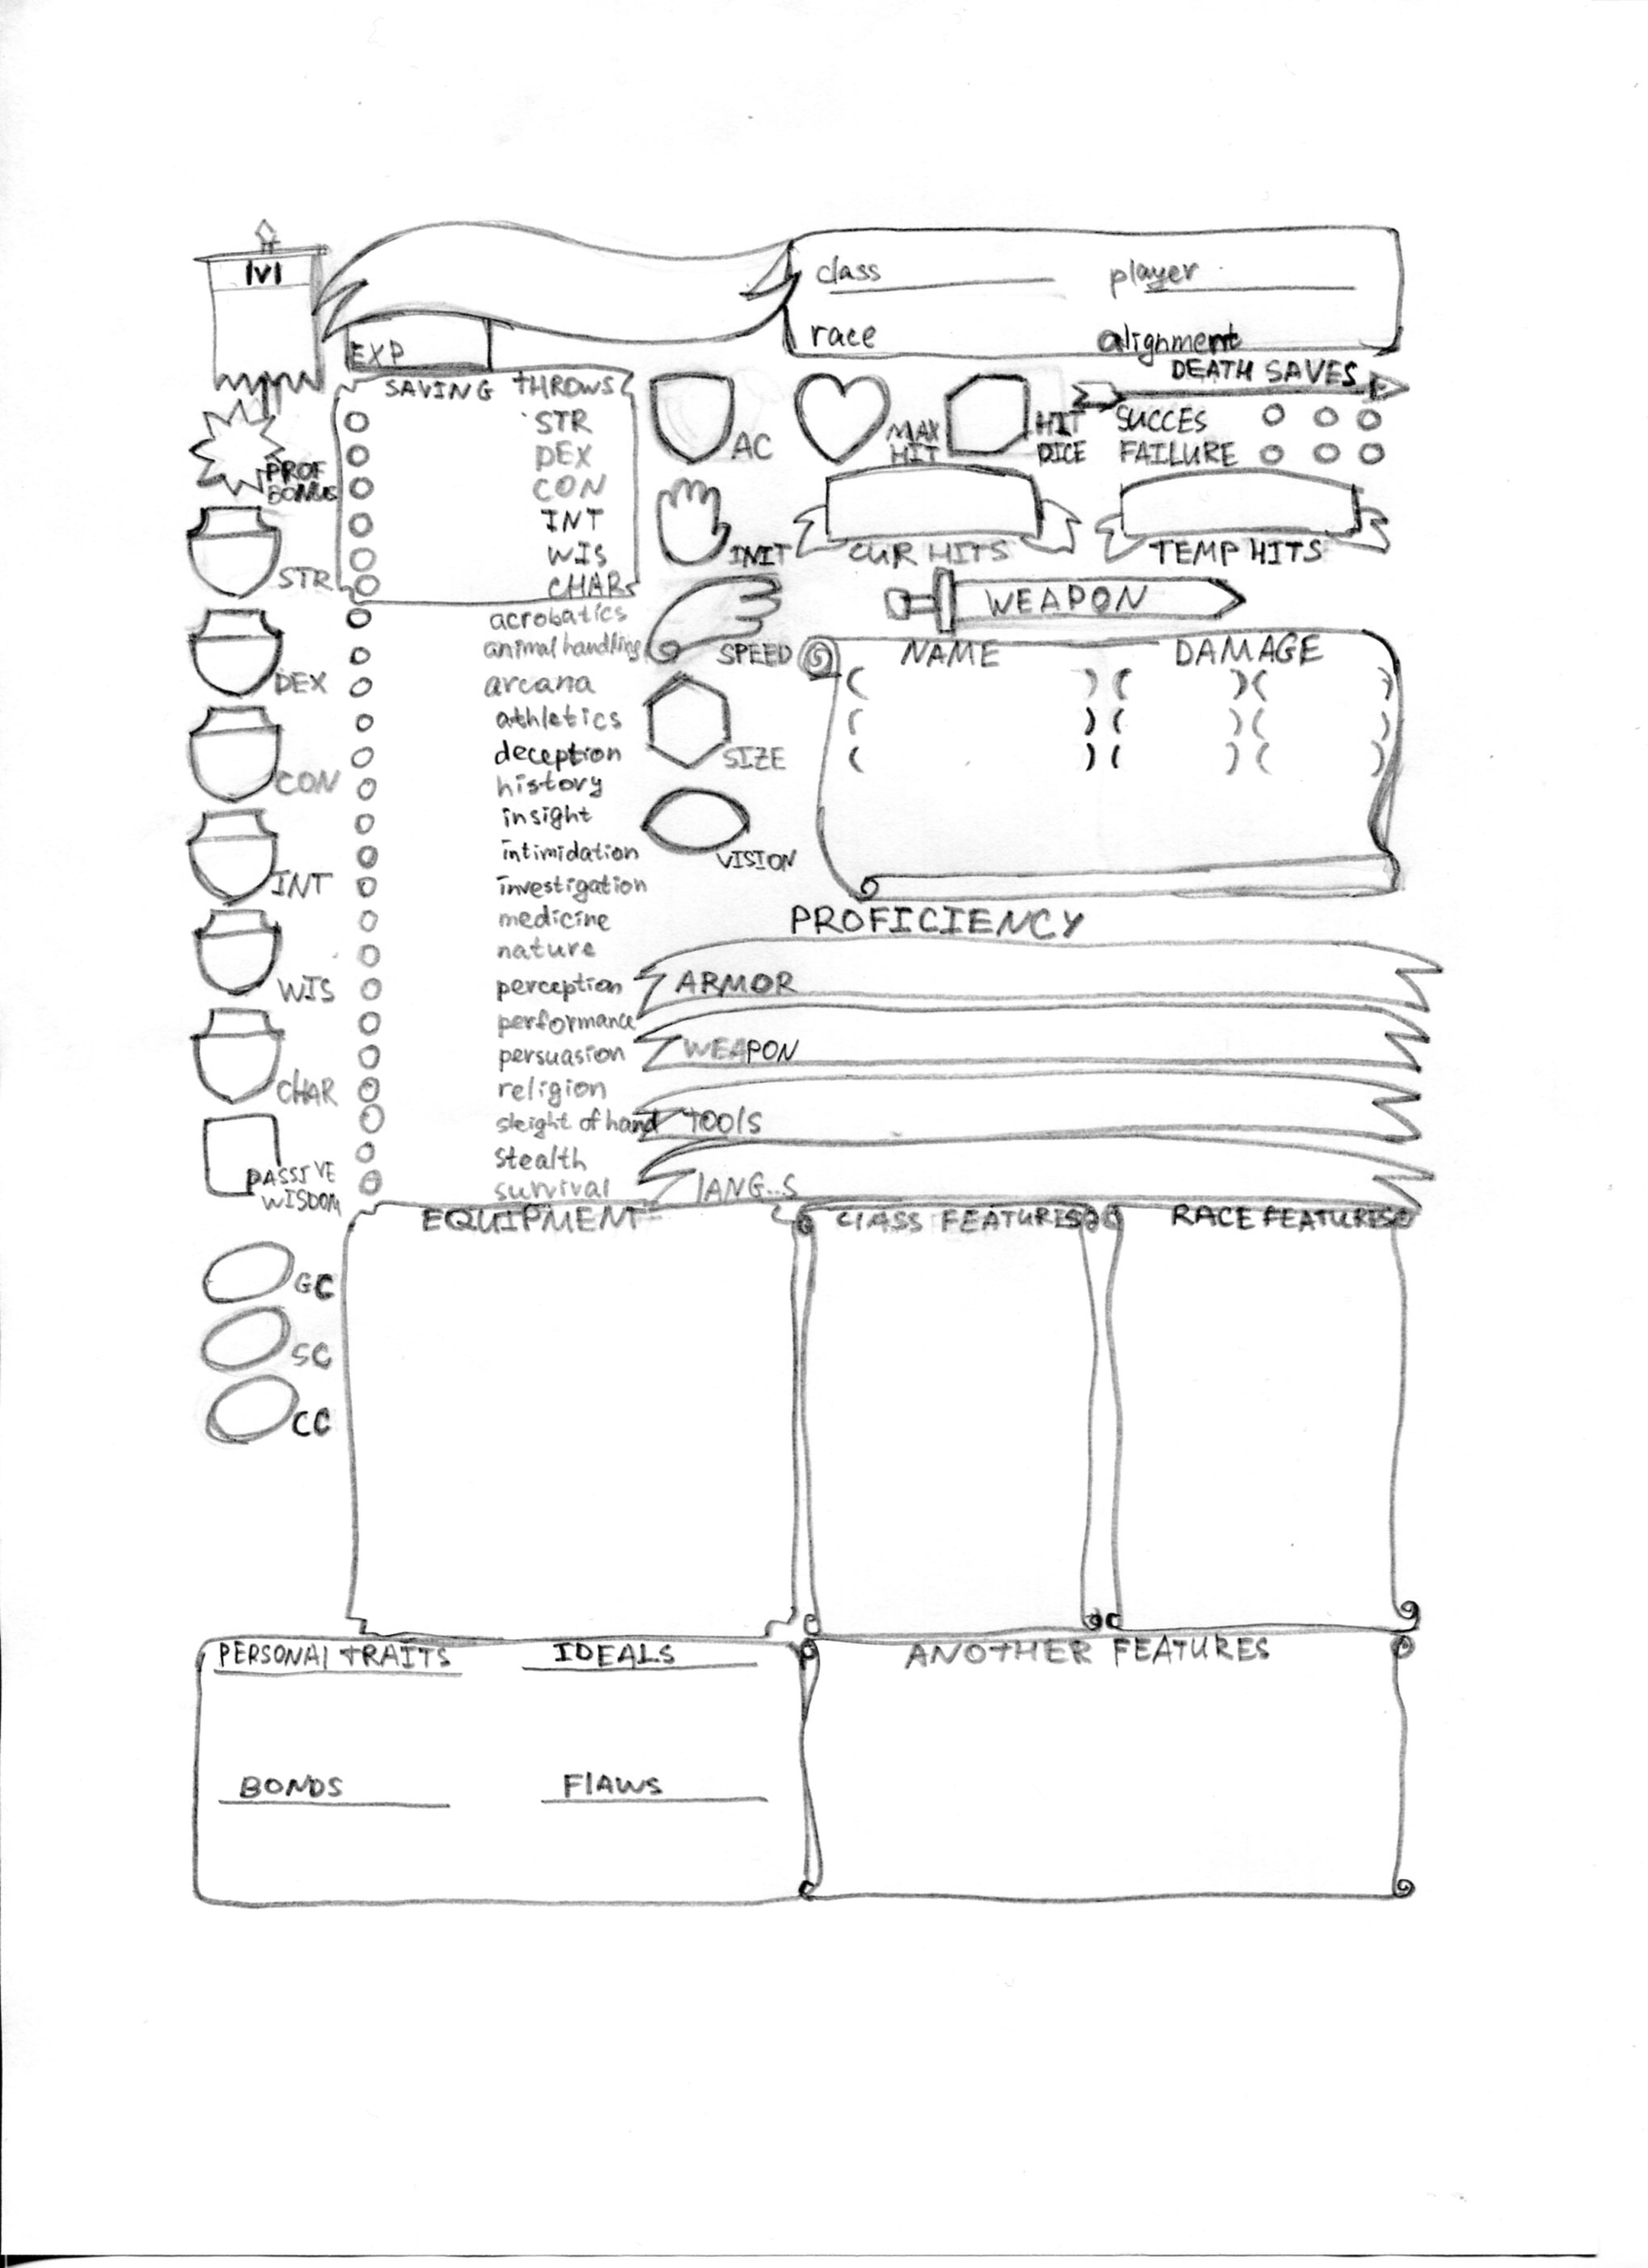 lvl
class player
race alignment
EXP
PROF
BONUS
STR
DEX
CON
INT
WIS
CHAR
PASSIVE
WISDOM
GC
SC
CC
SAVING THROWS
STR
DEX
CON
INT
WIS
CHAR
acrobatics
animal handling
arcana
athletics
deception
history
insight
intimidation
investigation
medicine
nature
perception
performance
persuasion
religion
sleight of hand
stealth
survival
AC
MAX
HIT
HIT
DICE
DEATH SAVES
SUCCES
FAILURE
INIT
CUR HITS
TEMP HITS
SPEED
SIZE
VISION
WEAPON
NAME DAMAGE
PROFICIENCY
ARMOR
WEAPON
TOOlS
lANG..S
EQUIPMENT
ClASS FEATURES
RACE FEATURES
PERSONAl TRAITS IDEALS
BONDS FlAWS
ANOTHER FEATURES